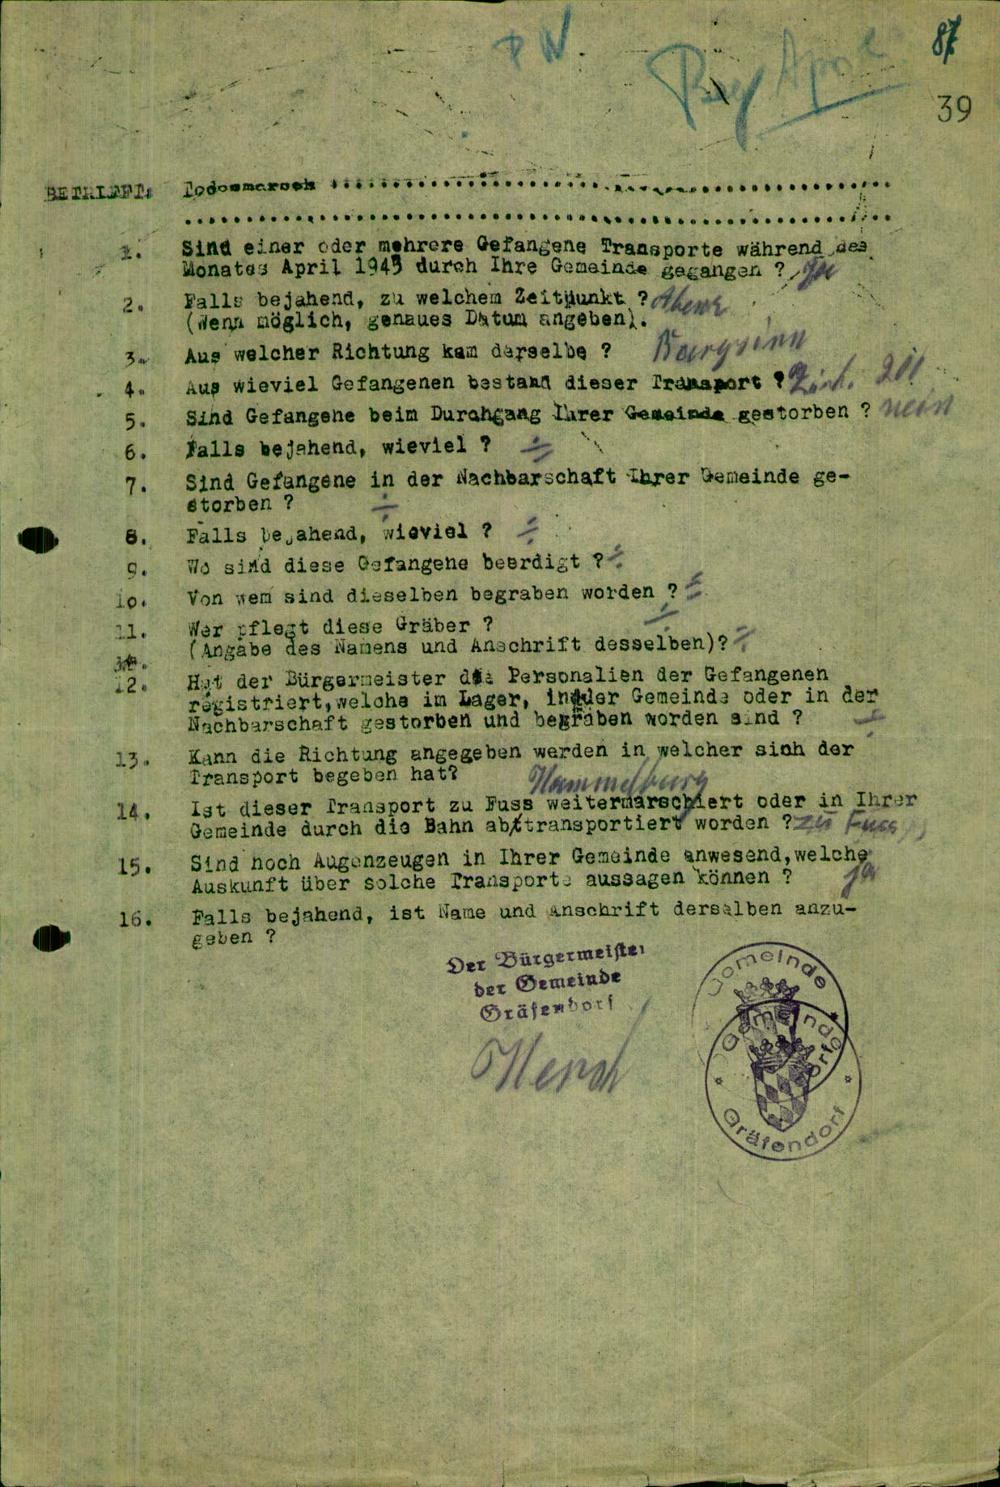 PW
87
39
BETRIFFT: Todesmarsch
1. Sind einer oder mehrere Gefangene Transporte während des
Monates April 1945 durch Ihre Gemeinde gegangen ? Ja
2. Falls bejahend, zu welchem Zeitpunkt ?
(Wenn möglich, genaues Datum angeben).
3. Aus welcher Richtung kam derselbe ? Burgsinn
4. Aus wieviel Gefangenen bestand dieser Transport ?
5. Sind Gefangene beim Durchgang Ihrer Gemeinde gestorben ? nein
6. Falls bejahend, wieviel ? ÷
7. Sind Gefangene in der Nachbarschaft Ihrer Gemeinde ge-
storben ? ÷
8. Falls bejahend, wieviel ? ÷
9. Wo sind diese Gefangene beerdigt ? ÷
10. Von wem sind dieselben begraben worden ? ÷
11. Wer pflegt diese Gräber ? ÷
(Angabe des Namens und Anschrift desselben)? ÷
12. Hat der Bürgermeister die Personalien der Gefangenen
registriert,welche im Lager, in der Gemeinde oder in der
Nachbarschaft gestorben und begraben worden sind ? ÷
13. Kann die Richtung angegeben werden in welcher sich der
Transport begeben hat? Hammelburg
14. Ist dieser Transport zu Fuss weitermarschiert oder in Ihrer
Gemeinde durch die Bahn abtransportiert worden ? zu Fuss
15. Sind noch Augenzeugen in Ihrer Gemeinde anwesend,welche
Auskunft über solche Transporte aussagen können ? ja
16. Falls bejahend, ist Name und Anschrift derselben anzu-
geben ?
Der Bürgermeister
der Gemeinde
Gräfendorf
Gemeinde
Gemeinde
Gräfendorf